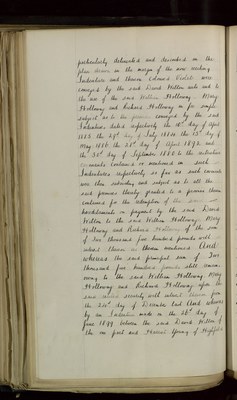 particularly delineated and described in the
plan drawn in the margin of the now reciting
Indenture and thereon coloured Violet were
conveyed by the said David Wilton unto and to
the use of the said William Holloway Mary
Holloway and Richard Holloway in fee simple
subject as to the premises conveyed by the said
Indentures dated respectively the 16th day of April
1883 the 29th day of July 1884 the 13th day of
May 1886 the 28th day of April 1892 and
the 30th day of September 1880 to the restrictive
covenants contained or mentioned in such
Indentures respectively so far as such covenants
were then subsisting and subject as to all the
said premises thereby granted to a proviso therein
contained for the redemption of the same on
payment by the said David
Wilton to the said William Holloway Mary
Holloway and Richard Holloway of the sum
of Two thousand five hundred pounds with
interest thereon as therein mentioned And
whereas the said principal sum of Two
thousand five hundred pounds still remains
owing to the said William Holloway Mary
Holloway and Richard Holloway upon the
same security with interest thereon from
the 24th day of December last And whereas
by an Indenture made on the 26th day of
June 1899 between the said David Wilton of
the one part and Harriet Young of Highfield